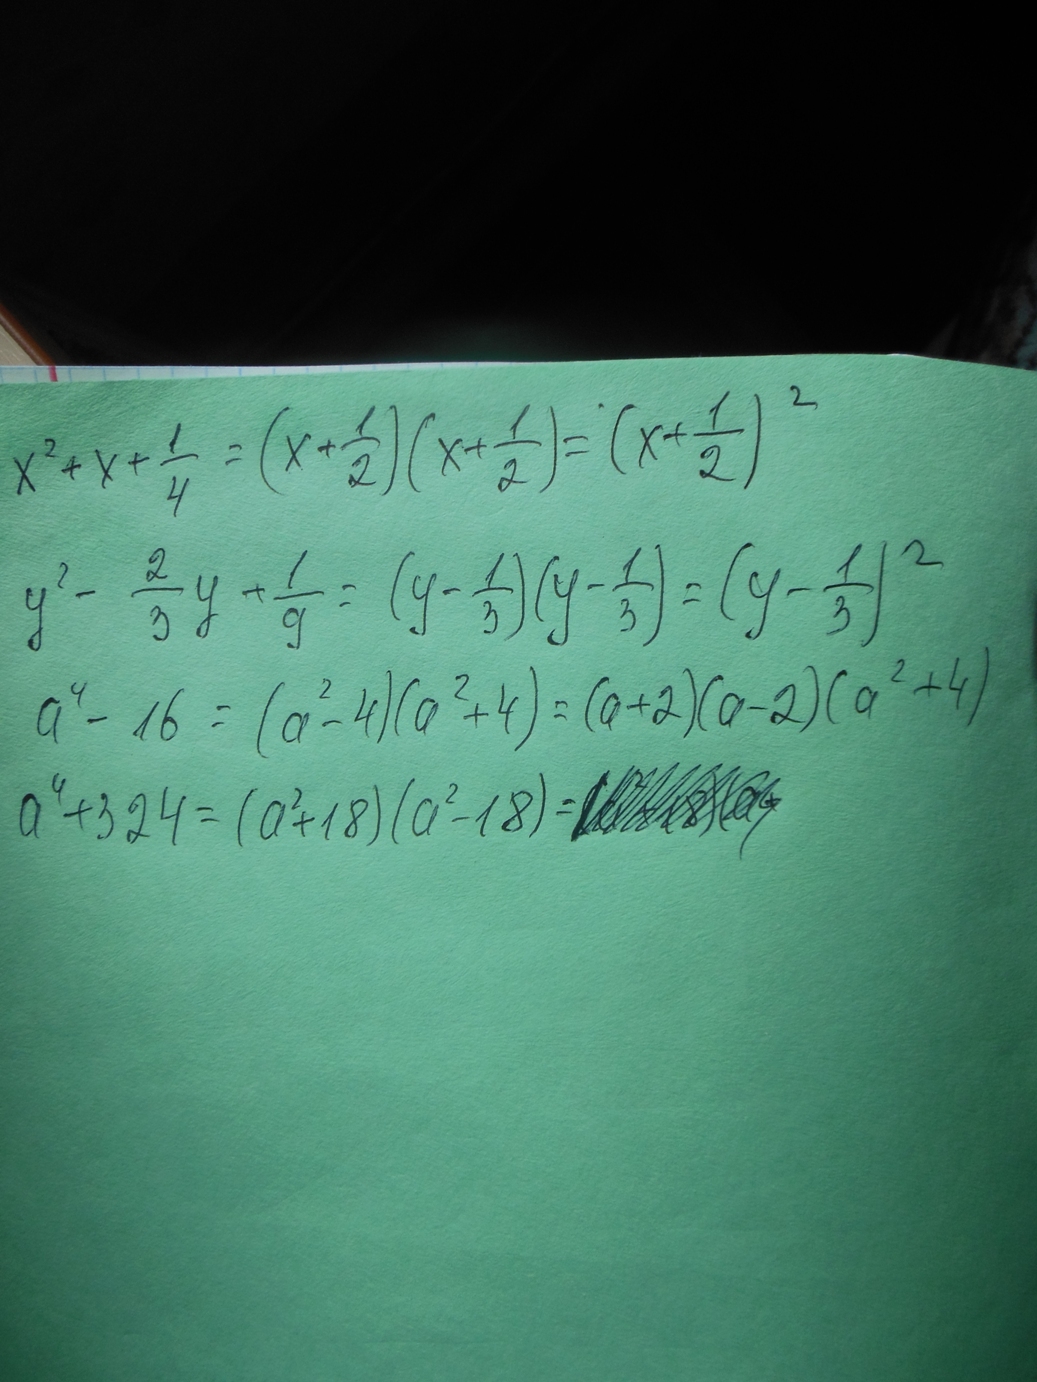 x² + x + 1/4 = (x + 1/2)(x + 1/2) = (x + 1/2)²
y² - 2/3 y + 1/9 = (y - 1/3)(y - 1/3) = (y - 1/3)²
a⁴ - 16 = (a² - 4)(a² + 4) = (a + 2)(a - 2)(a² + 4)
a⁴ + 324 = (a² + 18)(a² - 18) =